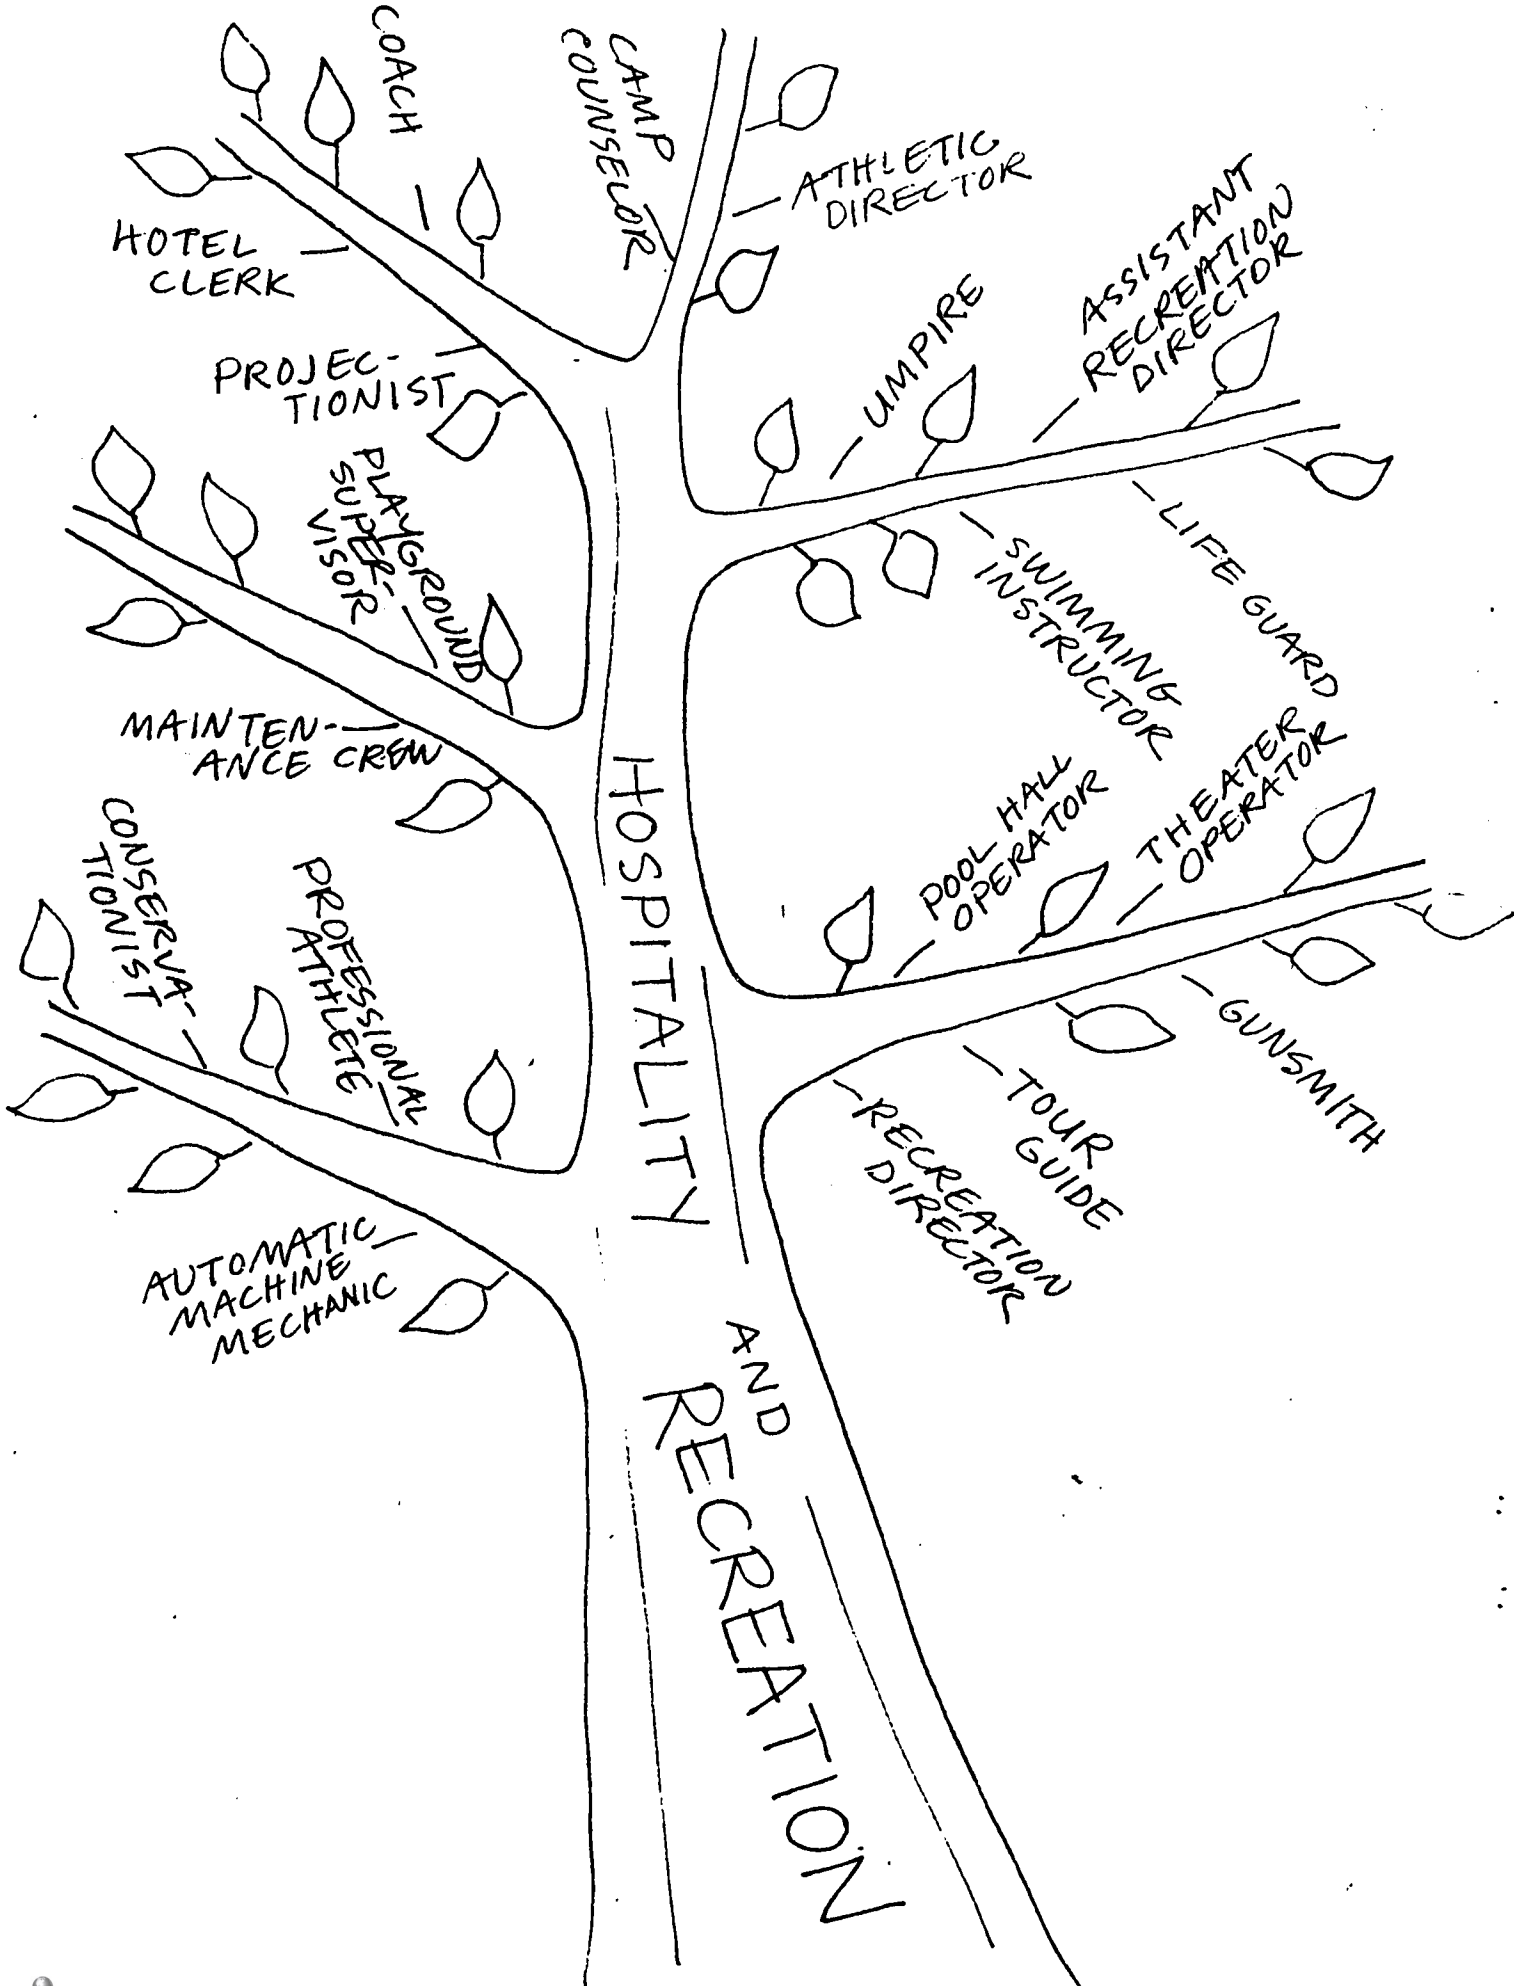 COACH
CAMP
COUNSELOR
ATHLETIC
DIRECTOR
HOTEL
CLERK
PROJEC-
TIONIST
UMPIRE
ASSISTANT
RECREATION
DIRECTOR
PLAYGROUND
SUPER-
VISOR
SWIMMING
INSTRUCTOR
LIFE GUARD
MAINTEN-
ANCE CREW
POOL HALL
OPERATOR
THEATER
OPERATOR
CONSERVA-
TIONIST
PROFESSIONAL
ATHLETE
GUNSMITH
TOUR
GUIDE
RECREATION
DIRECTOR
AUTOMATIC
MACHINE
MECHANIC
HOSPITALITY
AND
RECREATION